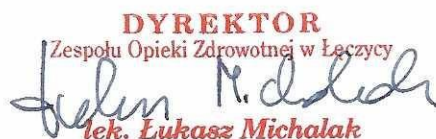 DYREKTOR
Zespołu Opieki Zdrowotnej w Łęczycy
lek. Łukasz Michalak